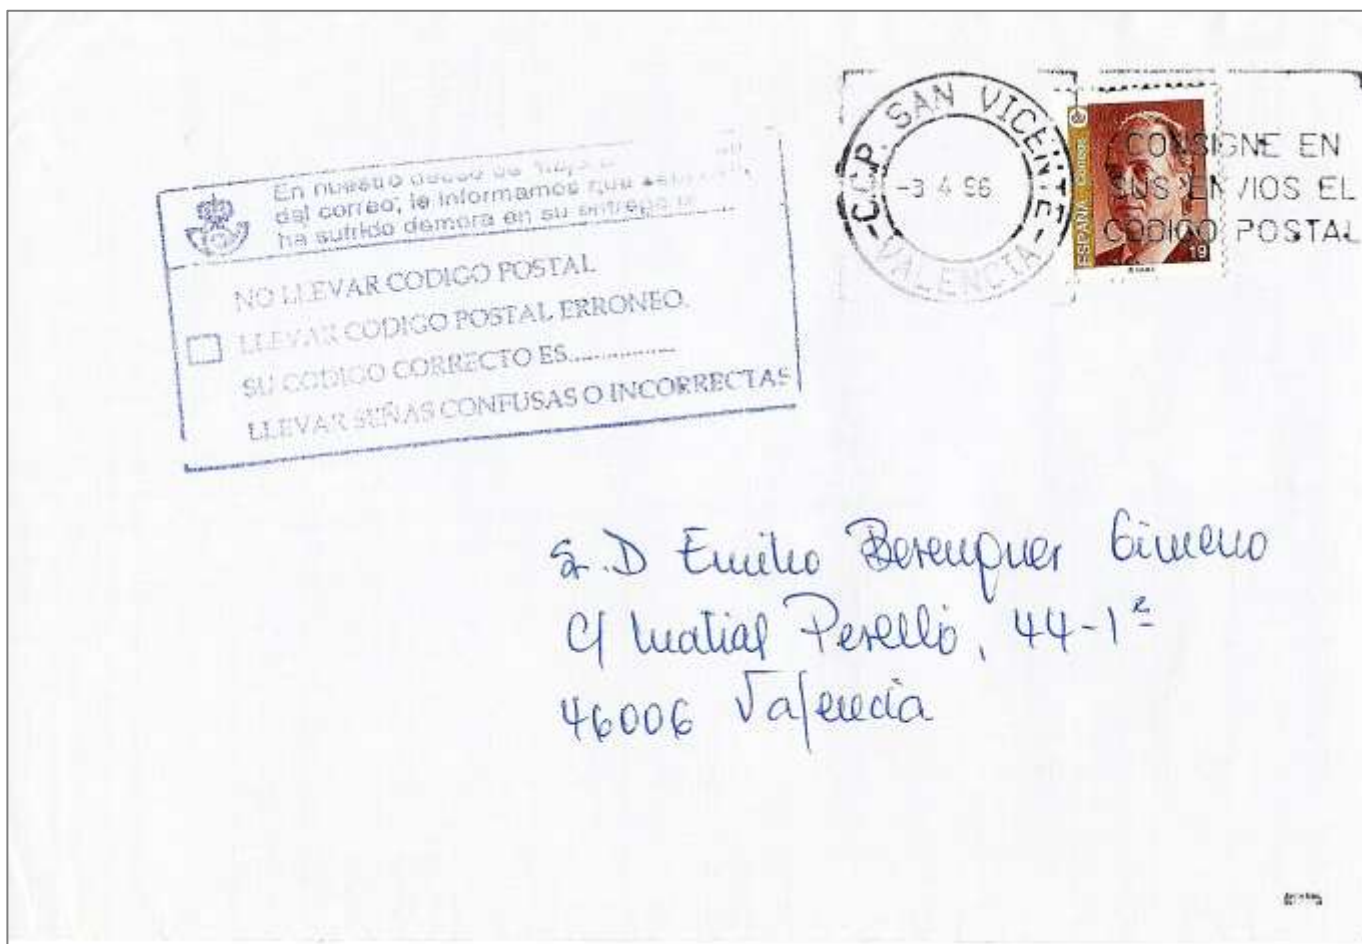 En nuestro deseo de
del correo, le informamos que
ha sufrido demora en su entrega
NO LLEVAR CODIGO POSTAL
LLEVAR CODIGO POSTAL ERRONEO.
SU CODIGO CORRECTO ES..................
LLEVAR SEÑAS CONFUSAS O INCORRECTAS
-C.C.P. SAN VICENTE-
-3 4 96
VALENCIA
CONSIGNE EN
SUS ENVIOS EL
CODIGO POSTAL
ESPAÑA correos
19
Sr. D Emilio Berenguer Gimeno
C/ Matial Perelló, 44-1º
46006 Valencia